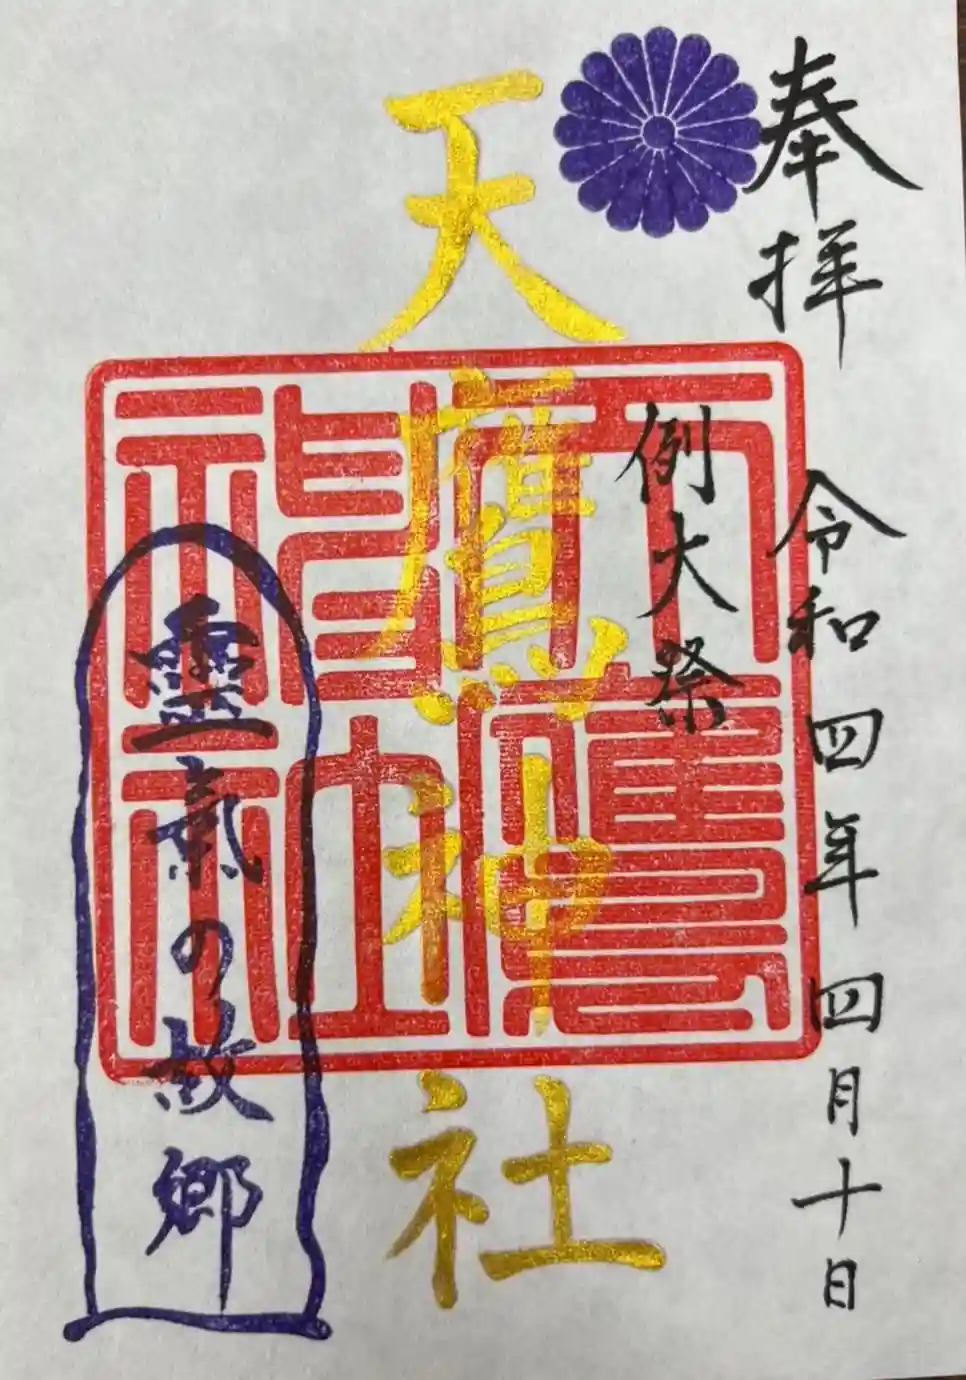 奉拝
令和四年四月十日
例大祭
天鷹神社
天鷹神社
靈氣の故郷